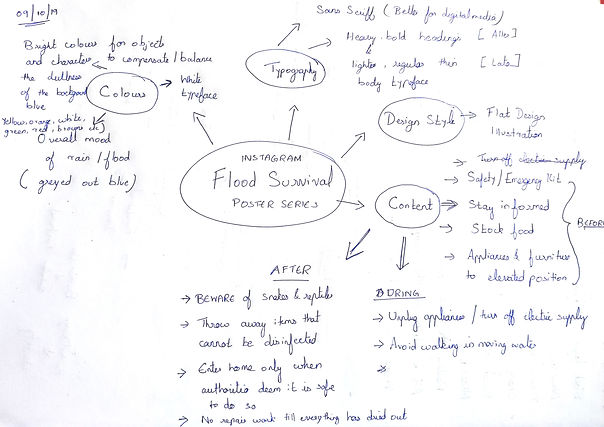 09/10/19
Sans Seriff (Better for digital media)
Heavy, bold headings [Aller]
&
lighter, regular thin [Lato]
body typeface
Typography
Bright colours for objects
and characters to compensate/balance
the dullness
of the background
blue
Yellow, orange, white,
green, red, browns etc
Colour
White
typeface
Overall mood
of rain/flood
(greyed out blue)
Design Style
Flat Design
Illustration
INSTAGRAM
Flood Survival
POSTER SERIES
Content
Turn off electric supply
Safety/Emergency Kit
Stay informed
Stock food
Appliances & furniture
to elevated position
BEFORE
AFTER
BEWARE of snakes & reptiles
Throw away items that
cannot be disinfected
Enter home only when
authorities deem it is safe
to do so
No repair work till everything has dried out
DURING
Unplug appliances / turn off electric supply
Avoid walking in moving water